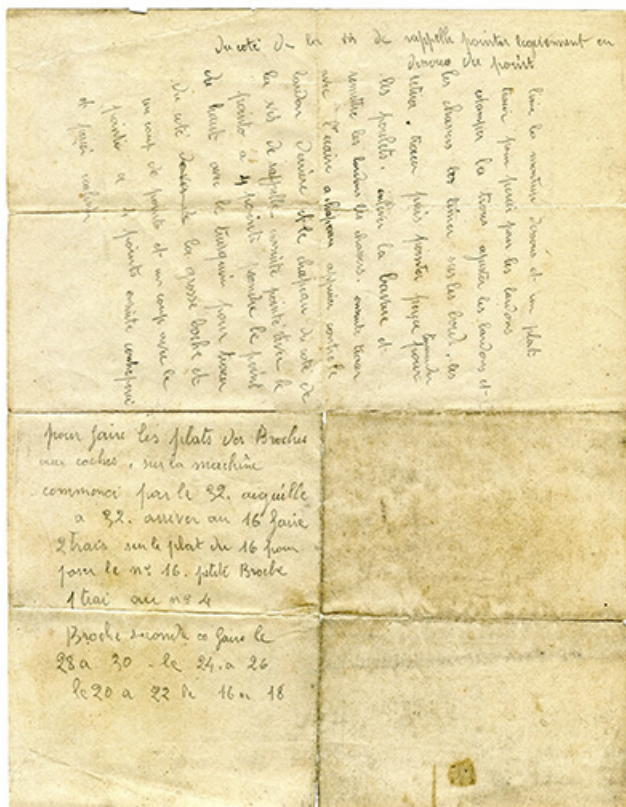 du coté de la vis de rappelle pointer legerement en
dessous du point
limé la monture dessus et un plat
trou pour percé pour les lardons
estamper la trous ajuster les lardons et
les chasser les limer sur les bord, les
retiré, tracer puis pointer perçer pour
les poulets, enlever la bavure et
remettre les lardons les chassers. ensuite tracer
avec l'écrin a chapeau appuier contre le
lardon derière et le chapeau du coté de
la vis de rappelle ensuite pointé avec le
pointo a 4 points prendre le point
du haut avec le trusquin pour tracer
du coté de la grosse boche et
un coup de pointo et un coup avec le
pointo a 4 points ensuite
et percé
pour faire les plats des Broches
aux coches, sur la machine
commencé par le 32. aiguille
a 32. arriver au 16 faire
2 trais sur le plat du 16 pour
poser le n° 16. petite Broche
1 trai au n° 4
Broche seconde co faire le
28 a 30 - le 24. a 26
le 20 a 22 le 16 a 18